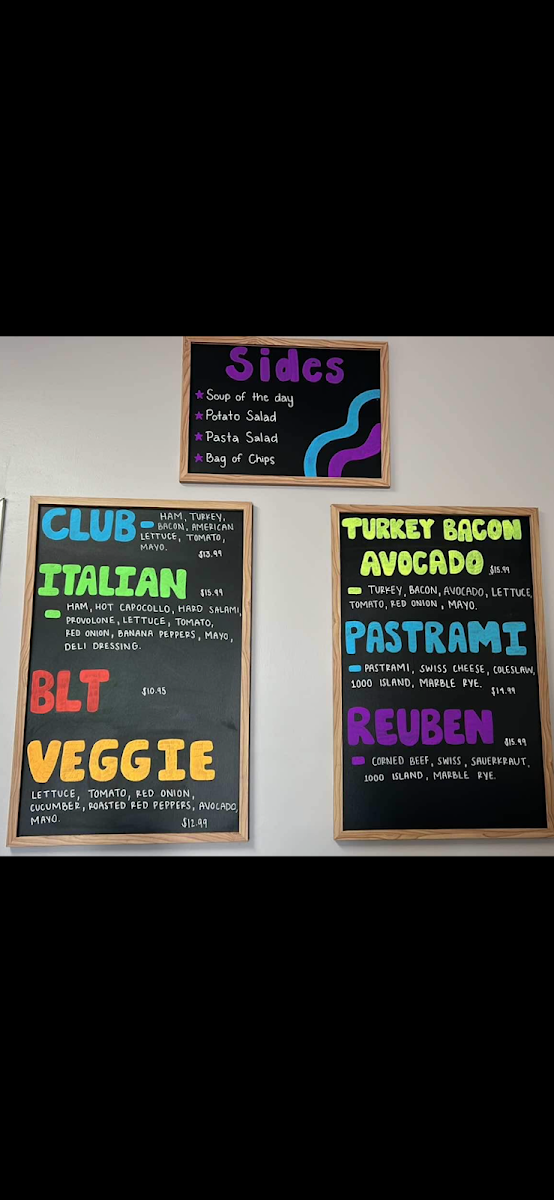 Sides
Soup of the day
Potato Salad
Pasta Salad
Bag of Chips
CLUB - HAM, TURKEY,
BACON, AMERICAN
LETTUCE, TOMATO,
MAYO.
$13.99
ITALIAN $15.99
- HAM, HOT CAPOCOLLO, HARD SALAMI,
PROVOLONE, LETTUCE, TOMATO,
RED ONION, BANANA PEPPERS, MAYO,
DELI DRESSING.
BLT $10.95
VEGGIE
LETTUCE, TOMATO, RED ONION,
CUCUMBER, ROASTED RED PEPPERS, AVOCADO,
MAYO. $12.99
TURKEY BACON
AVOCADO $15.99
- TURKEY, BACON, AVOCADO, LETTUCE,
TOMATO, RED ONION, MAYO.
PASTRAMI
- PASTRAMI, SWISS CHEESE, COLESLAW,
1000 ISLAND, MARBLE RYE.
$14.99
REUBEN $15.99
- CORNED BEEF, SWISS, SAUERKRAUT,
1000 ISLAND, MARBLE RYE.